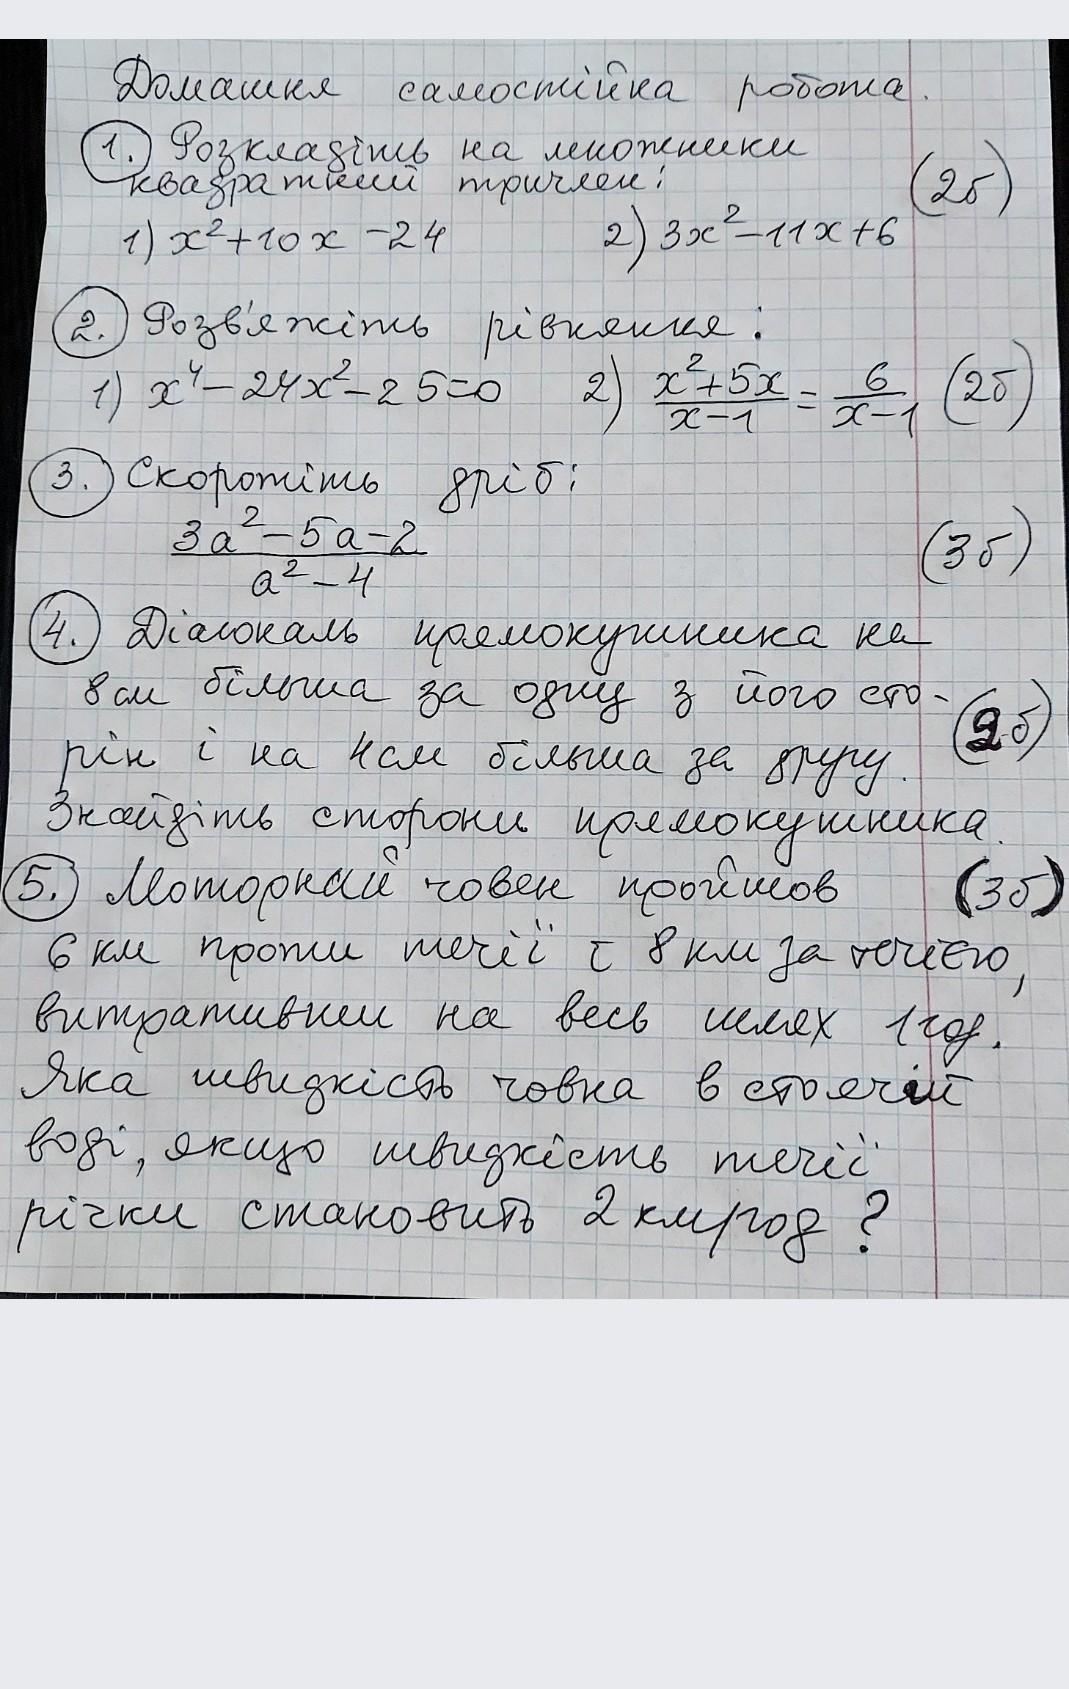 Домашня самостійна робота.
1. Розкладіть на множники
квадратний тричлен: (2б)
1) x²+10x-24 2) 3x²-11x+6
2. Розв'яжіть рівняння:
1) x⁴-24x²-25=0 2) (x²+5x)/(x-1) = 6/(x-1) (2б)
3. Скоротіть дріб:
(3a²-5a-2)/(a²-4) (3б)
4. Діагональ прямокутника на
8см більша за одну з його сто-
рін і на 4см більша за другу. (2б)
Знайдіть сторони прямокутника.
5. Моторний човен пройшов (3б)
6 км проти течії і 8 км за течією,
витративши на весь шлях 1 год.
Яка швидкість човна в стоячій
воді, якщо швидкість течії
річки становить 2 км/год?